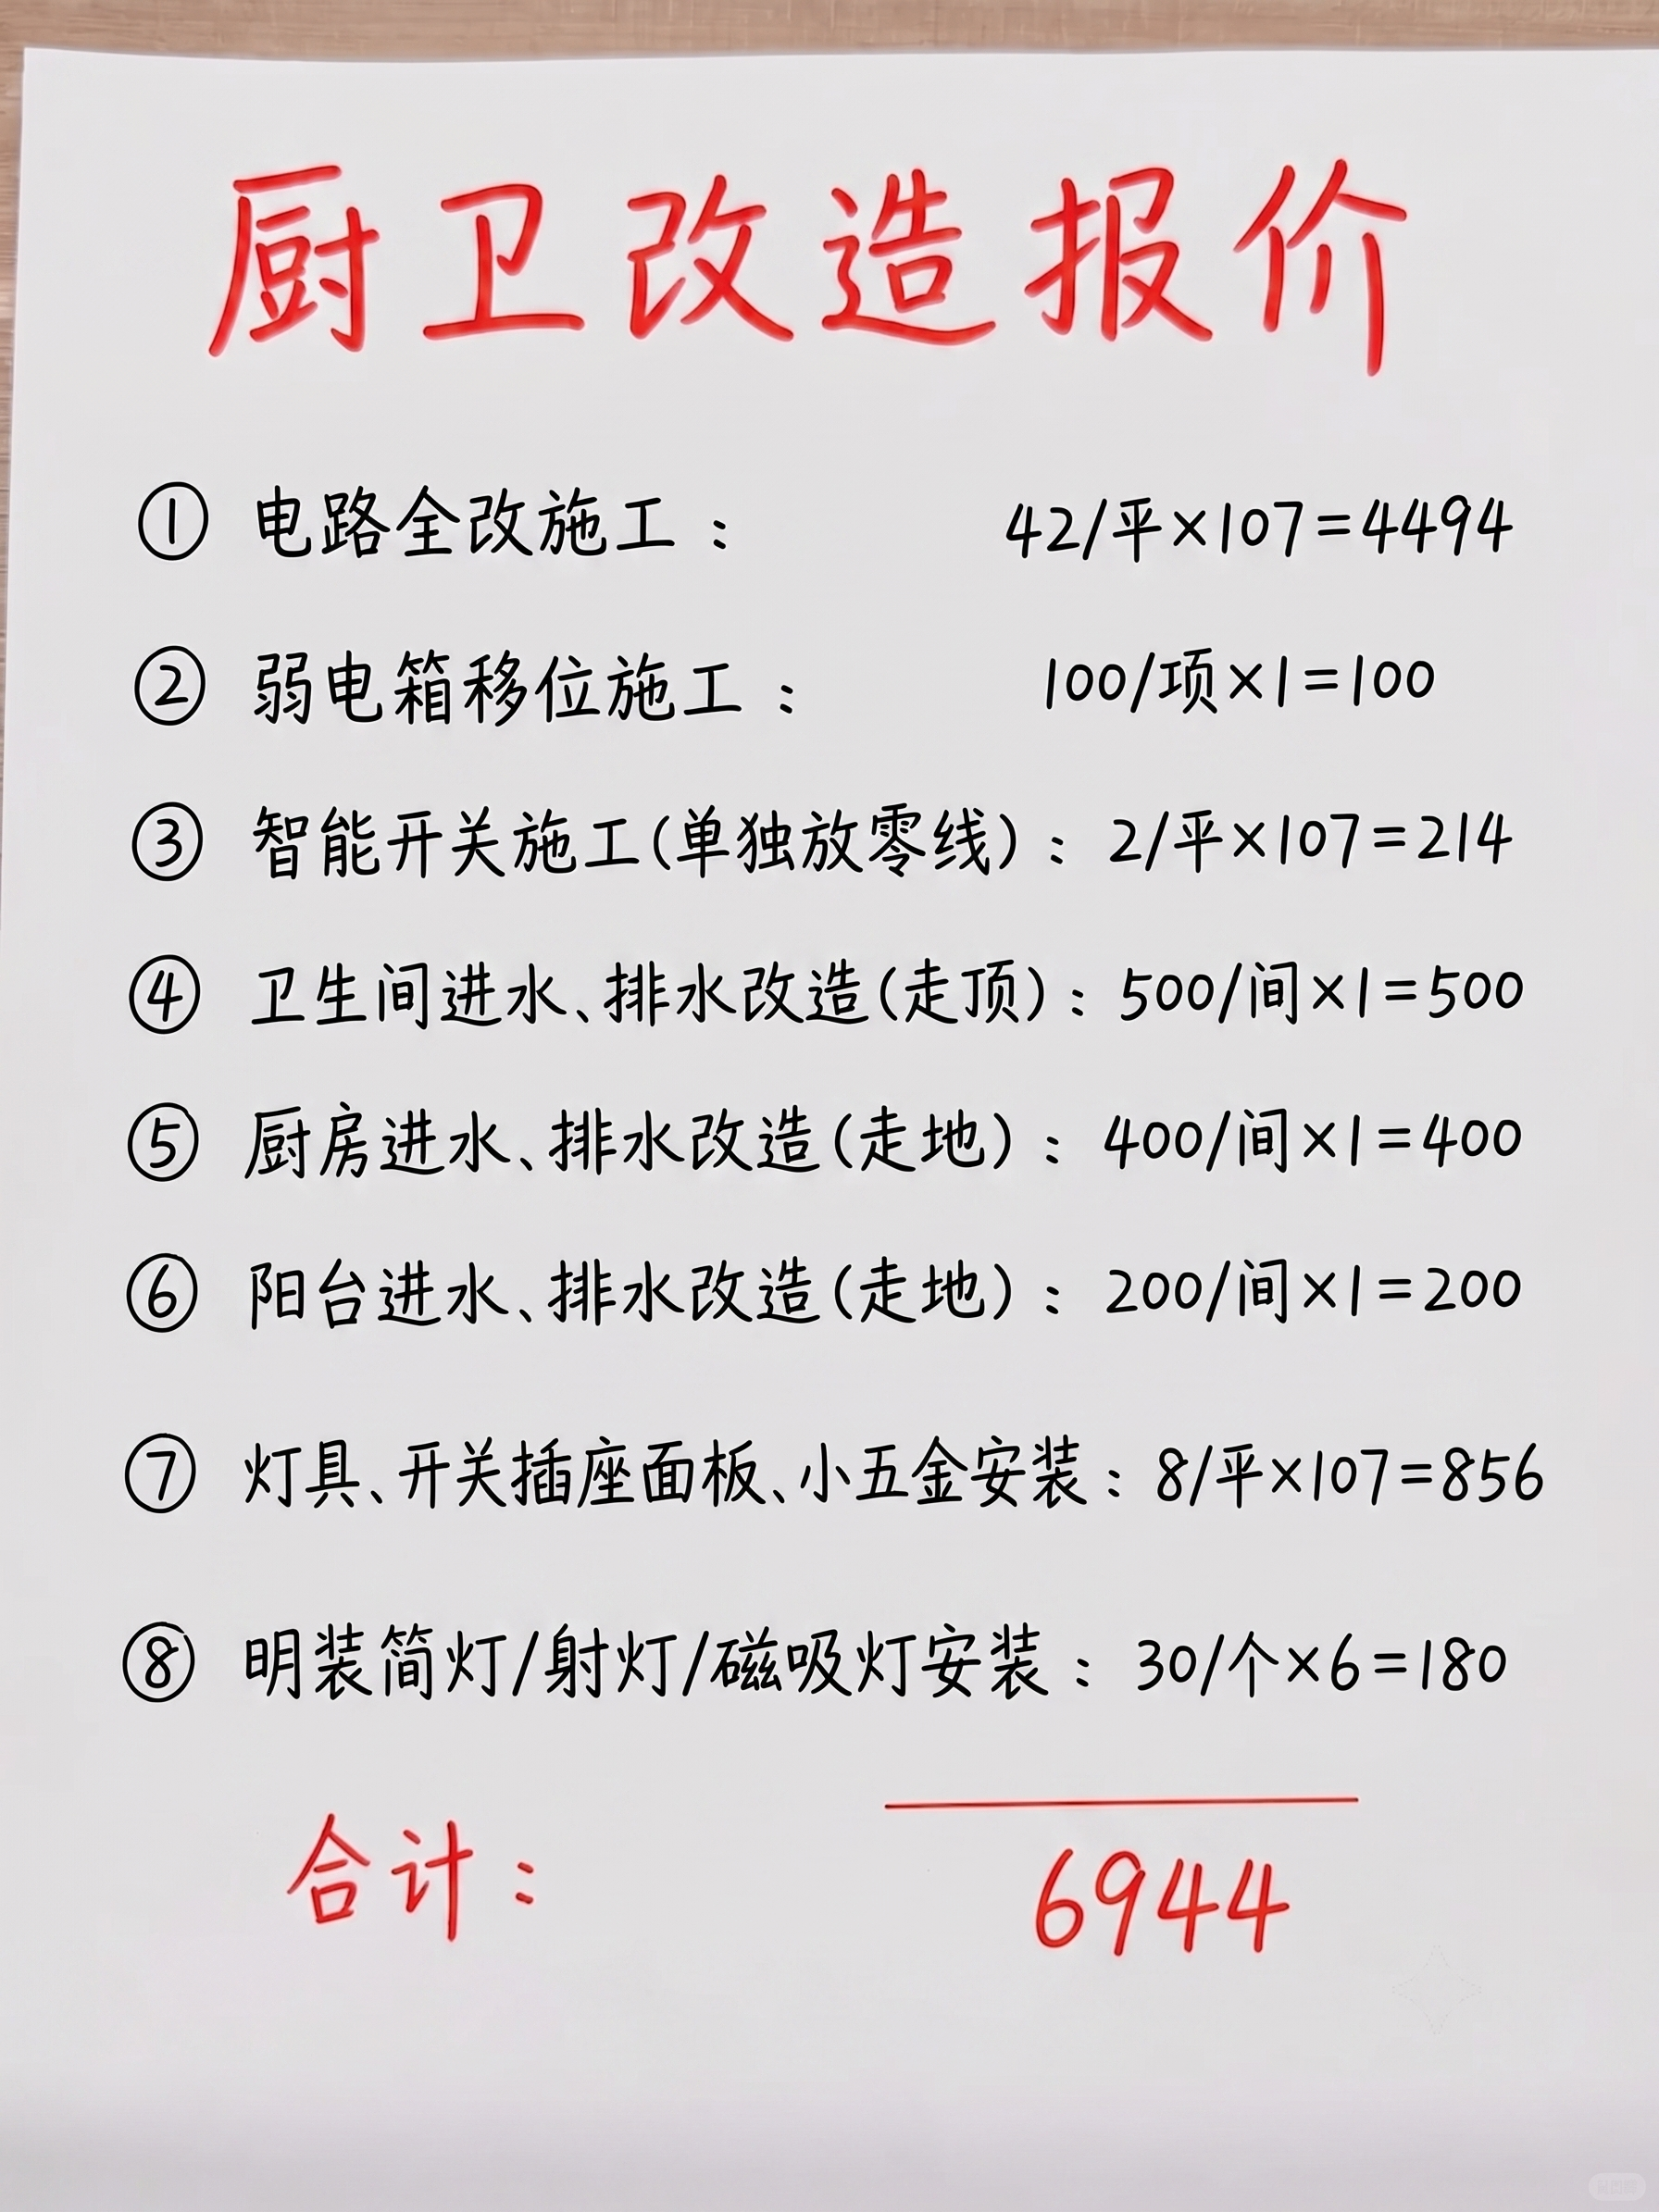 厨卫改造报价
① 电路全改施工： 42/平×107=4494
② 弱电箱移位施工： 100/项×1=100
③ 智能开关施工(单独放零线)：2/平×107=214
④ 卫生间进水、排水改造(走顶)：500/间×1=500
⑤ 厨房进水、排水改造(走地)：400/间×1=400
⑥ 阳台进水、排水改造(走地)：200/间×1=200
⑦ 灯具、开关插座面板、小五金安装：8/平×107=856
⑧ 明装简灯/射灯/磁吸灯安装：30/个×6=180
合计： 6944